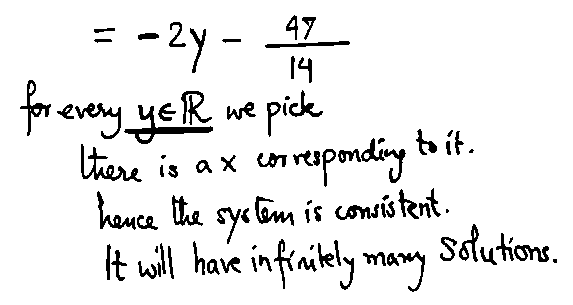 = -2y - 47/14
for every y∈ℝ we pick
there is a x corresponding to it.
hence the system is consistent.
It will have infinitely many solutions.